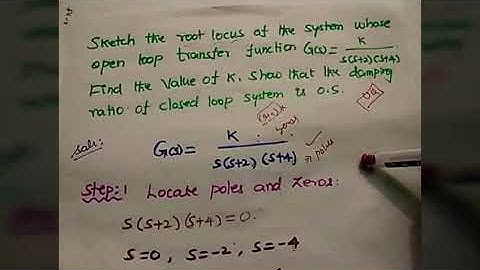 Sketch the root locus of the system whose
open loop transfer function G(s) = K / s(s+2)(s+4)
Find the value of K. Show that the damping
ratio of closed loop system is 0.5.
Soln:
G(s) = K / s(s+2)(s+4)
zeros
poles
Step:1 Locate poles and Zeros:
s(s+2)(s+4)=0.
s=0, s=-2, s=-4